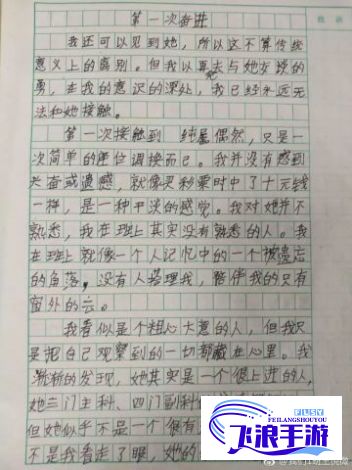 第一次奋进
我还可以见到她，所以这不算传统
意义上的离别。但我以再去与她交谈的
勇，在我的意识的深处，我已经永远无
法和她接触。
第一次接触到 纯属偶然，只是一
次简单的座位调换而已。我并没有感到
兴奋或遗憾，就像买彩票时中了十元钱
一样，是一种平淡的感觉。我对她并不
熟悉，我在班上其实没有熟悉的人。我
在班上就像一个人记忆中的一个被遗忘
的角落，没有人搭理我，陪伴我的只有
窗外的云。
我看似是个粗心大意的人，但我只
是把自己观察到的一切都藏在心里。我
渐渐的发现，她其实是一个很上进的人，
她三门主科、四门副科
但她似乎不是一个很有
不是我看走了眼，她的
飞浪手游
FEILANGSHOUYOU